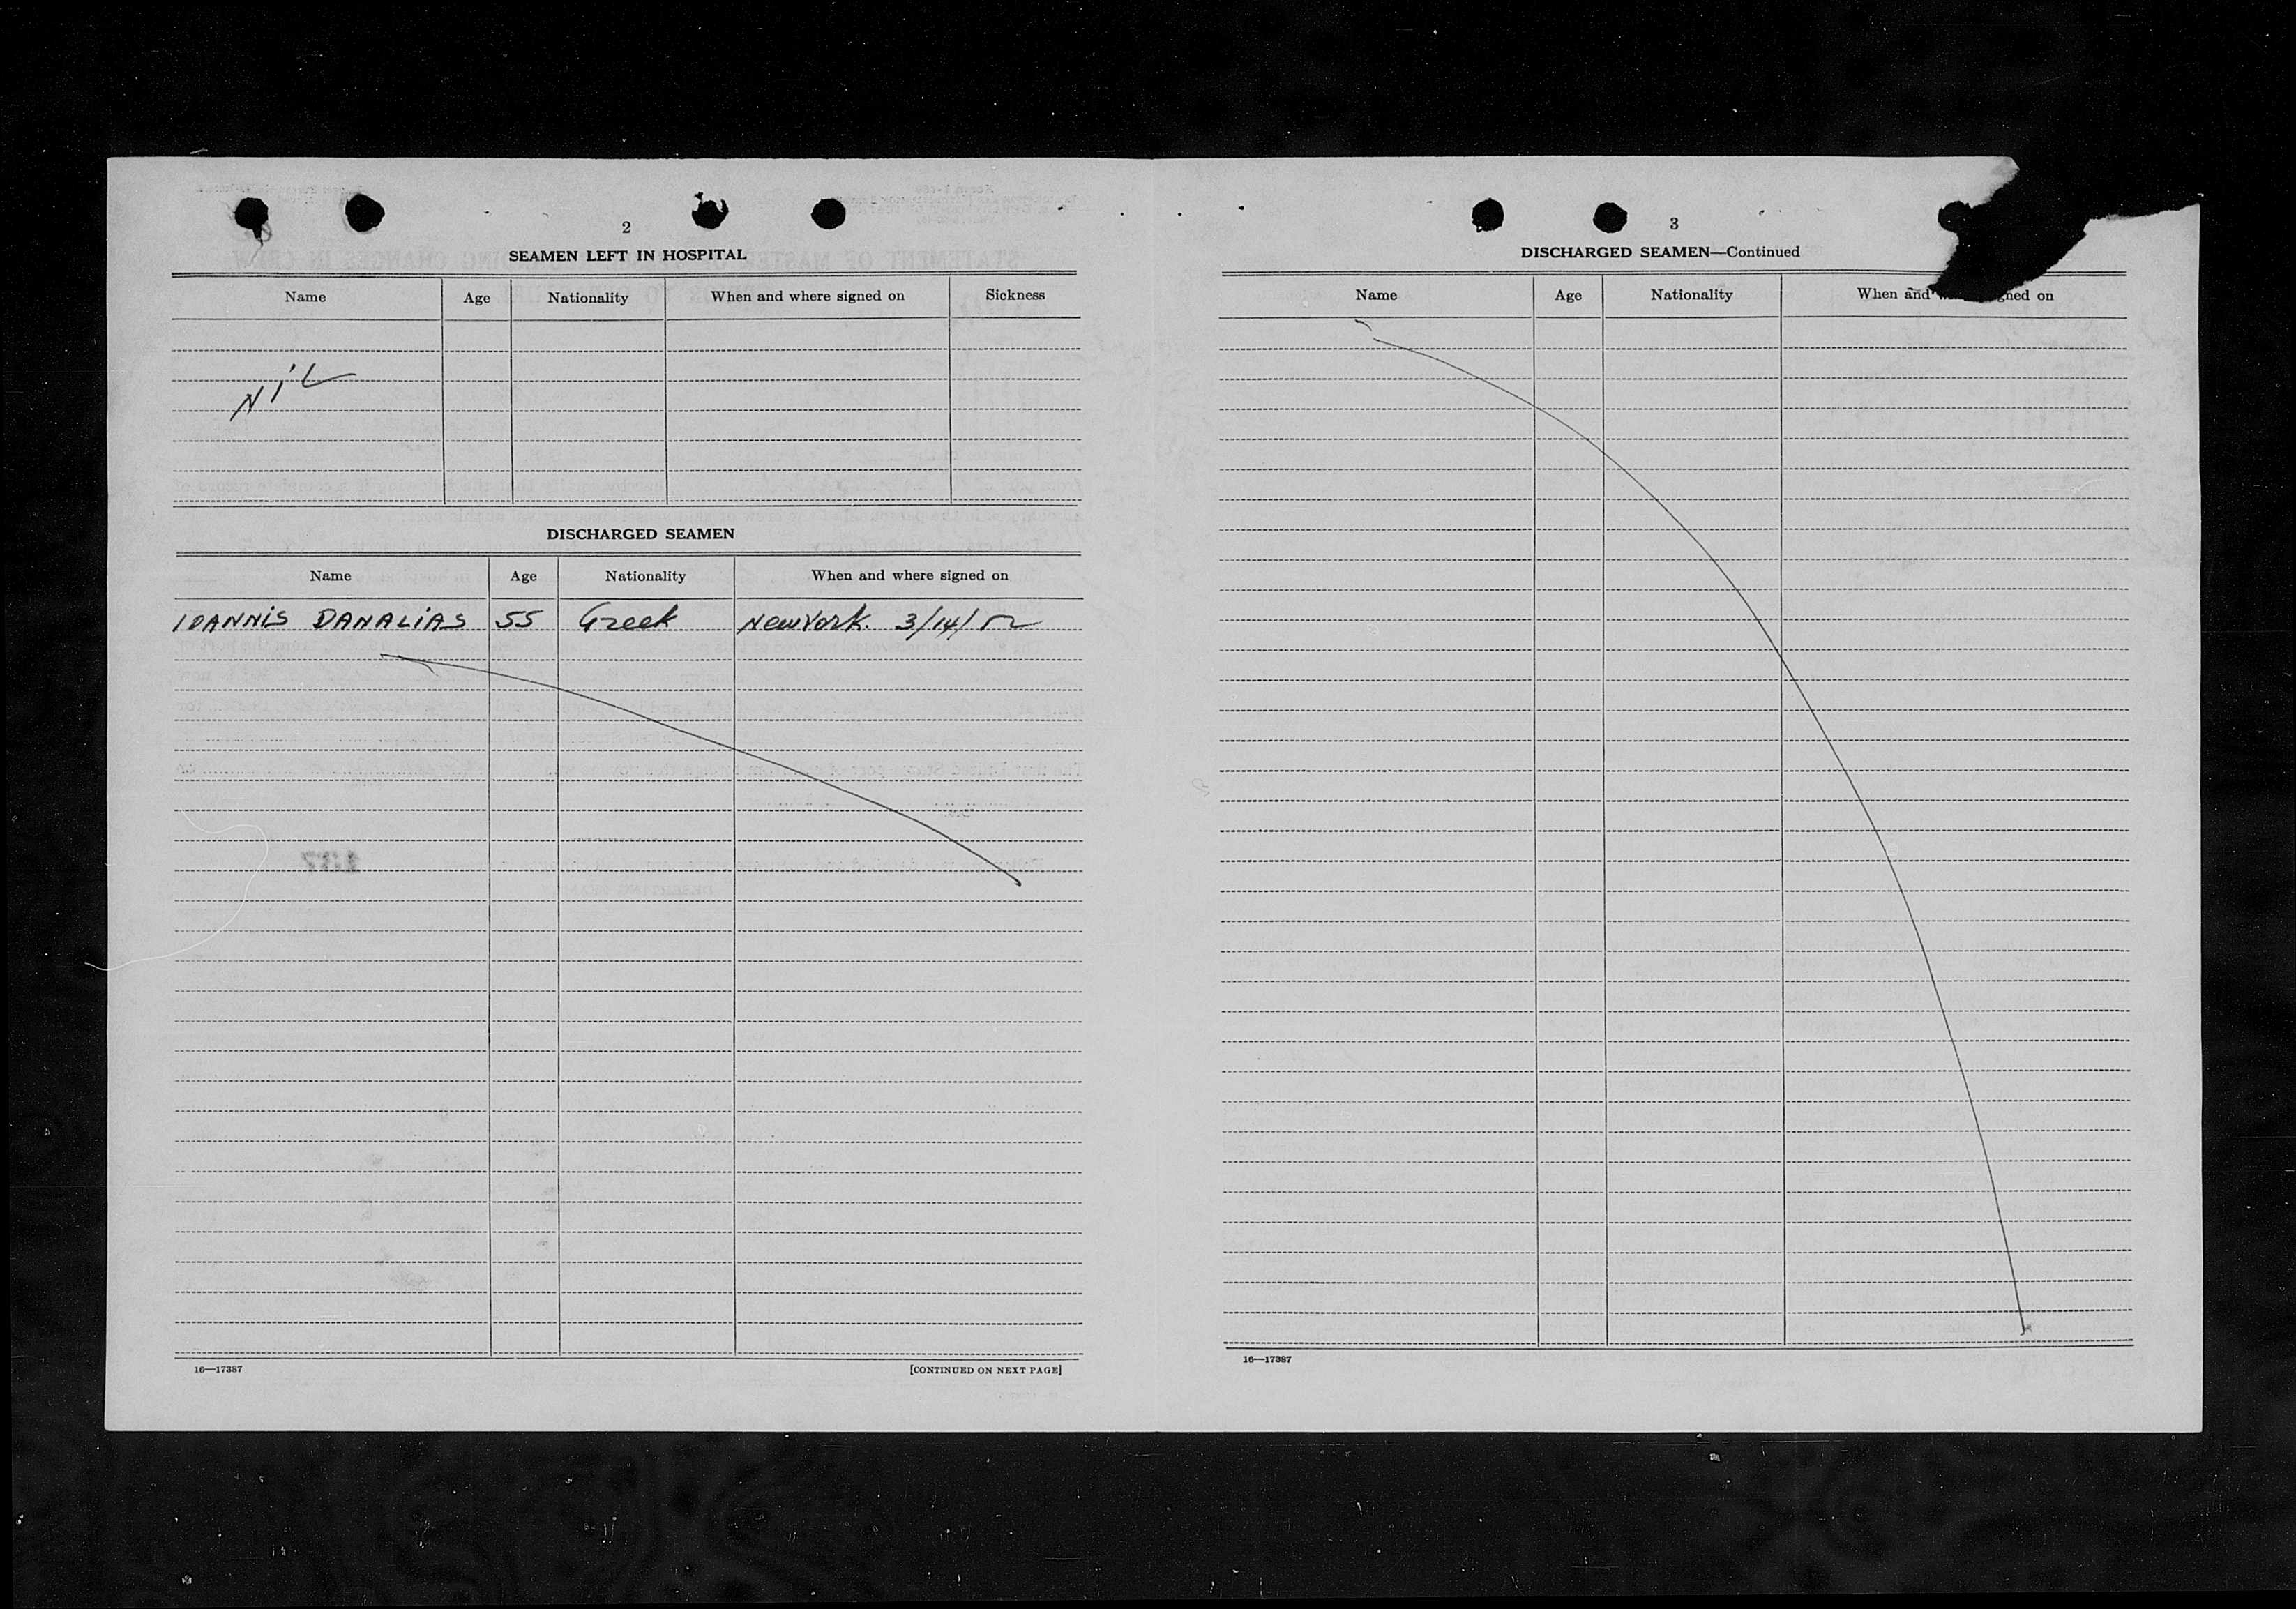 2
SEAMEN LEFT IN HOSPITAL
Name Age Nationality When and where signed on Sickness
NiL
DISCHARGED SEAMEN
Name Age Nationality When and where signed on
IOANNIS DANALIAS 55 Greek New York. 3/14/52
16—17387 [CONTINUED ON NEXT PAGE]
3
DISCHARGED SEAMEN—Continued
Name Age Nationality When and signed on
16—17387